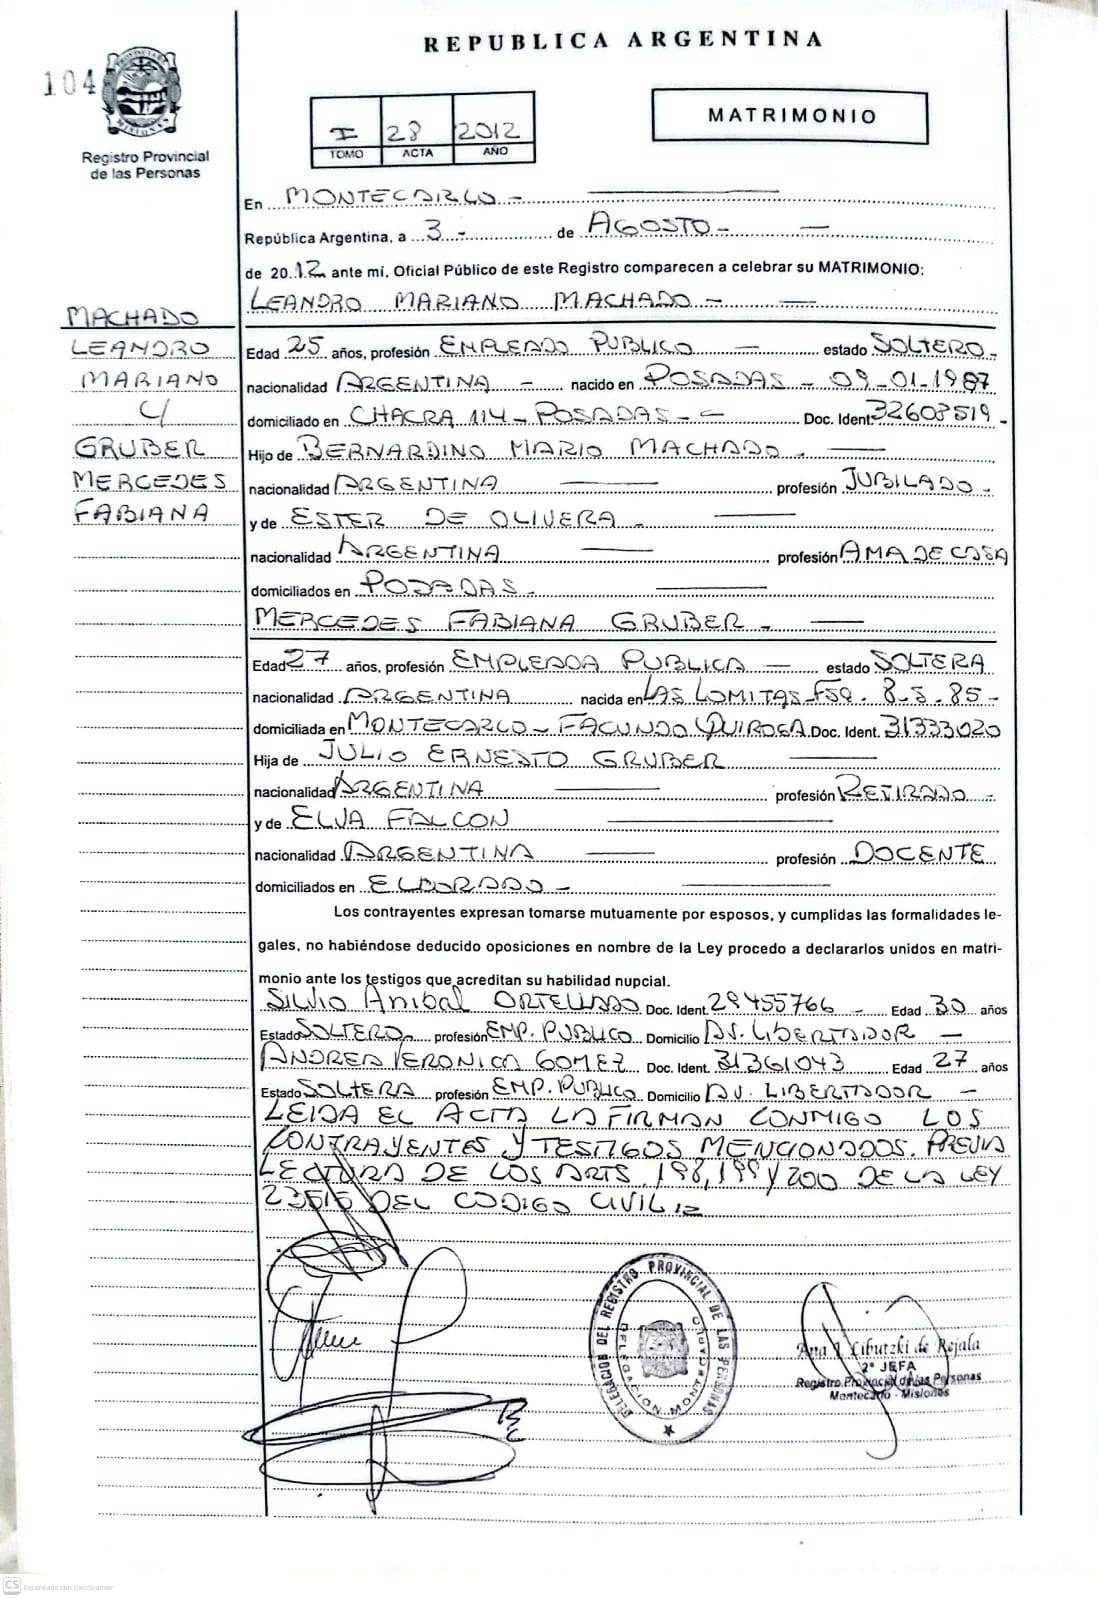 REPUBLICA ARGENTINA
104
PROVINCIA DE MISIONES
Registro Provincial
de las Personas
I 28 2012
TOMO ACTA AÑO
MATRIMONIO
En MONTECARLO -
República Argentina, a 3 - de AGOSTO -
de 2012 ante mí, Oficial Público de este Registro comparecen a celebrar su MATRIMONIO:
LEANDRO MARIANO MACHADO -
MACHADO
LEANDRO
MARIANO
C/
GRUBER
MERCEDES
FABIANA
Edad 25 años, profesión EMPLEADO PUBLICO estado SOLTERO -
nacionalidad ARGENTINA - nacido en POSADAS - 09-01-1987
domiciliado en CHACRA 114 - POSADAS - Doc. Ident. 32603519 -
Hijo de BERNARDINO MARIO MACHADO -
nacionalidad ARGENTINA profesión JUBILADO -
y de ESTER DE OLIVERA -
nacionalidad ARGENTINA profesión AMA DE CASA
domiciliados en POSADAS -
MERCEDES FABIANA GRUBER -
Edad 27 años, profesión EMPLEADA PUBLICA estado SOLTERA
nacionalidad ARGENTINA nacida en LAS LOMITAS - FSA. 8-5-85 -
domiciliada en MONTECARLO - FACUNDO QUIROGA Doc. Ident. 31333020
Hija de JULIO ERNESTO GRUBER
nacionalidad ARGENTINA profesión RETIRADO -
y de ELVA FALCON
nacionalidad ARGENTINA profesión DOCENTE
domiciliados en ELDORADO -
Los contrayentes expresan tomarse mutuamente por esposos, y cumplidas las formalidades le-
gales, no habiéndose deducido oposiciones en nombre de la Ley procedo a declararlos unidos en matri-
monio ante los testigos que acreditan su habilidad nupcial.
Silvio Anibal ORTELLADO Doc. Ident. 29455766 - Edad 30 años
Estado SOLTERO profesión EMP. PUBLICO Domicilio AV. LIBERTADOR -
ANDREA VERONICA GOMEZ Doc. Ident. 31361043 Edad 27 años
Estado SOLTERA profesión EMP. PUBLICO Domicilio AV. LIBERTADOR -
LEIDA EL ACTA LA FIRMAN CONMIGO LOS
CONTRAYENTES Y TESTIGOS MENCIONADOS. PREVIA
LECTURA DE LOS ARTS. 198, 199 Y 200 DE LA LEY
23515 DEL CODIGO CIVIL
DELEGACION DEL REGISTRO PROVINCIAL DE LAS PERSONAS
DELEGACION MONTECARLO
Ana Cibutzki de Rejala
2ª JEFA
Registro Provincial de las Personas
Montecarlo - Misiones
CS Escaneado con CamScanner